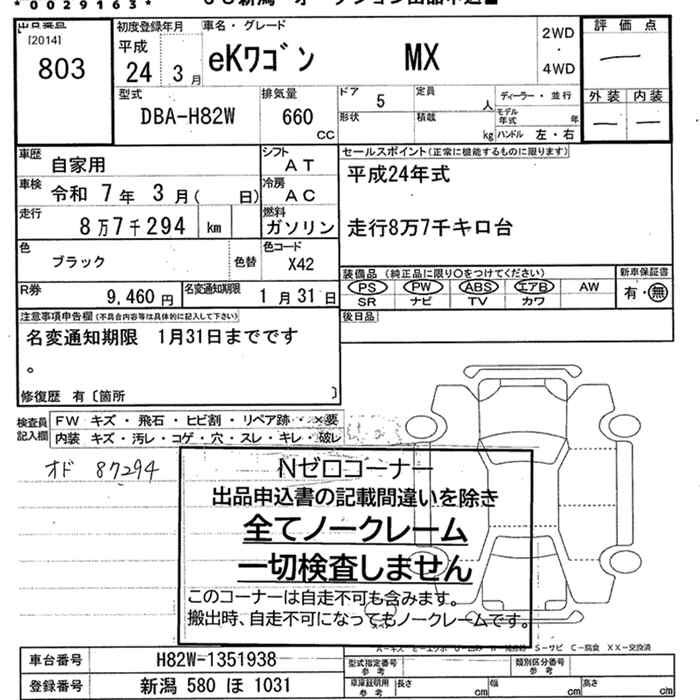 *0029163*
出品番号
[2014]
803
初度登録年月
平成
24年 3月
車名・グレード
eKワゴン MX
2WD
・
4WD
評価点
—
外装 内装
— —
型式
DBA-H82W
排気量
660
CC
ドア 5
形状
定員
人
積載
kg
ディーラー・並行
モデル年式 年
ハンドル 左・右
車歴
自家用
シフト
AT
車検
令和 7年 3月( 日)
冷房
AC
走行
8万7千294 km
燃料
ガソリン
色
ブラック
色替
色コード
X42
R券
9,460円
名変通知期限
1月31日
セールスポイント(正常に機能するものに限ります)
平成24年式
走行8万7千キロ台
装備品(純正品に限り○をつけてください)
PS PW ABS エアB AW
SR ナビ TV カワ
新車保証書
有・無
後日品
注意事項申告欄(不具合内容等は具体的に記入して下さい)
名変通知期限 1月31日までです
。
修復歴 有〔箇所 〕
検査員
記入欄
FW キズ・飛石・ヒビ割・リペア跡・×要
内装 キズ・汚レ・コゲ・穴・スレ・キレ・破レ
オド 87294
Nゼロコーナー
出品申込書の記載間違いを除き
全てノークレーム
一切検査しません
このコーナーは自走不可も含みます。
搬出時、自走不可になってもノークレームです。
S－サビ C－腐食 XX－交換済
車台番号
H82W-1351938
登録番号
新潟 580 ほ 1031
型式指定番号
参考
類別区分番号
参考
車庫証明用
参考
長さ cm
幅 cm
高さ cm